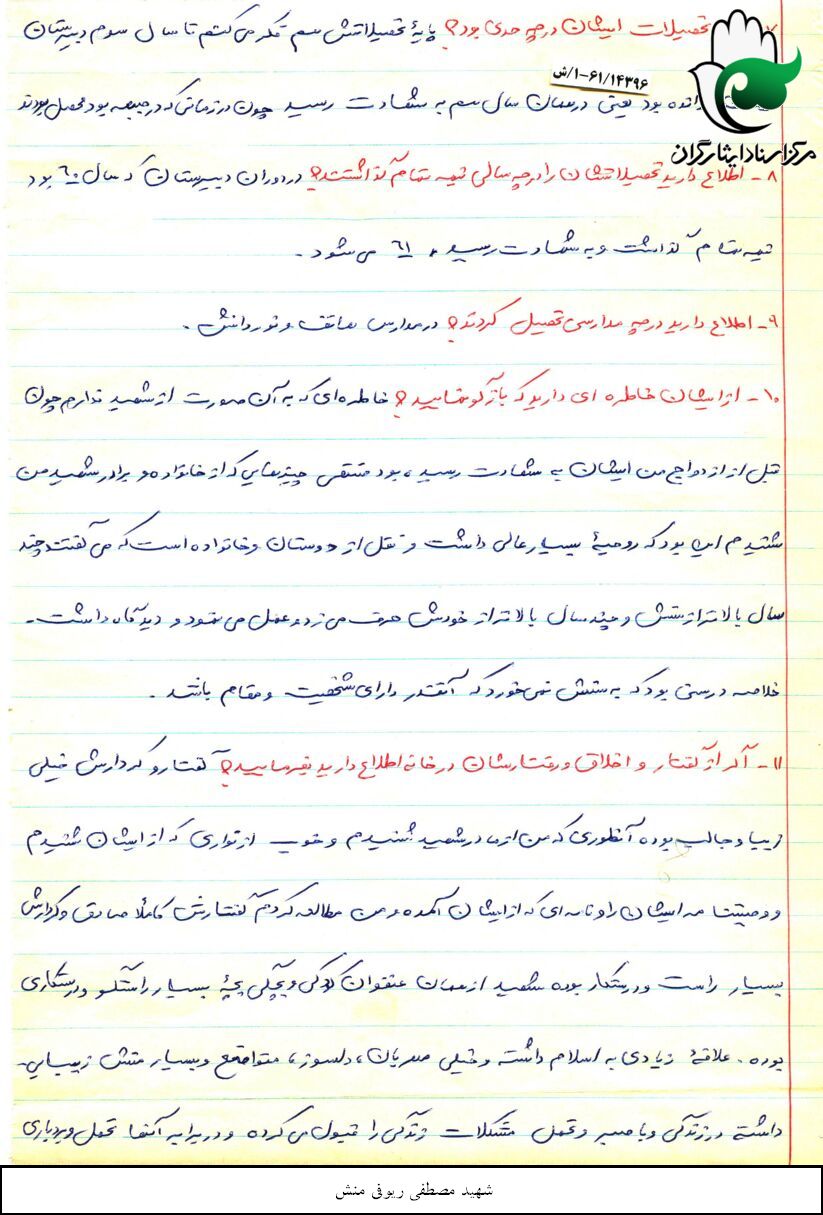 تحصیلات ایشان در چه حدی بود؟ پایهٔ تحصیلاتش سم فکر می‌کنم تا سال سوم دبیرستان
۱۴۳۹۶/۶۱-۱/ش
بود یعنی در همان سال سم به شهادت رسید چون در زمانی که در جبهه بود محصل بودند
مرکز اسناد ایثارگران
۸- اطلاع دارید تحصیلاتشان را در چه سالی نیمه تمام گذاشتند؟ در دوران دبیرستان که سال ۶۰ بود
نیمه تمام گذاشت و به شهادت رسید، ۶۱ می‌شود.
۹- اطلاع دارید در چه مدارسی تحصیل کردند؟ در مدارس هاتف و نور دانش.
۱۰- از ایشان خاطره ای دارید که بازگو نمایید؟ خاطره‌ای که به آن صورت از شهید ندارم چون
قبل از ازدواج من ایشان به شهادت رسیده بود منتهی چیزهایی که از خانواده و برادر شهید من
شنیدم این بود که روحیهٔ بسیار عالی داشت و نقل از دوستان و خانواده است که می‌گفتند چند
سال بالاتر از سنش و چند سال بالاتر از خودش حرف می‌زد و عمل می‌نمود و دیدگاه داشت.
خلاصه درسنی بود که به سنش نمی‌خورد که آنقدر دارای شخصیت و مقام باشد.
۱۱- اگر از گفتار و اخلاق و رفتارشان در خانه اطلاع دارید بفرمایید؟ گفتار و کردارش خیلی
زیبا و جالب بوده آنطوری که من از مادر شهید شنیدم و خوب از نواری که از ایشان شنیدم
و وصیتنامه ایشان را و نامه‌ای که از ایشان آمده و من مطالعه کردم گفتارش کاملاً صادق و کردارش
بسیار راست و درستکار بوده شهید از همان عنفوان کودکی و بچگی بچهٔ بسیار راستگو و درستکاری
بوده. علاقهٔ زیادی به اسلام داشته و خیلی مهربان، دلسوز، متواضع و بسیار منش زیبایی
داشته در زندگی و با صبر و تحمل مشکلات زندگی را قبول می‌کرده و در برابر آنها تحمل و بردباری
شهید مصطفی ریوفی منش